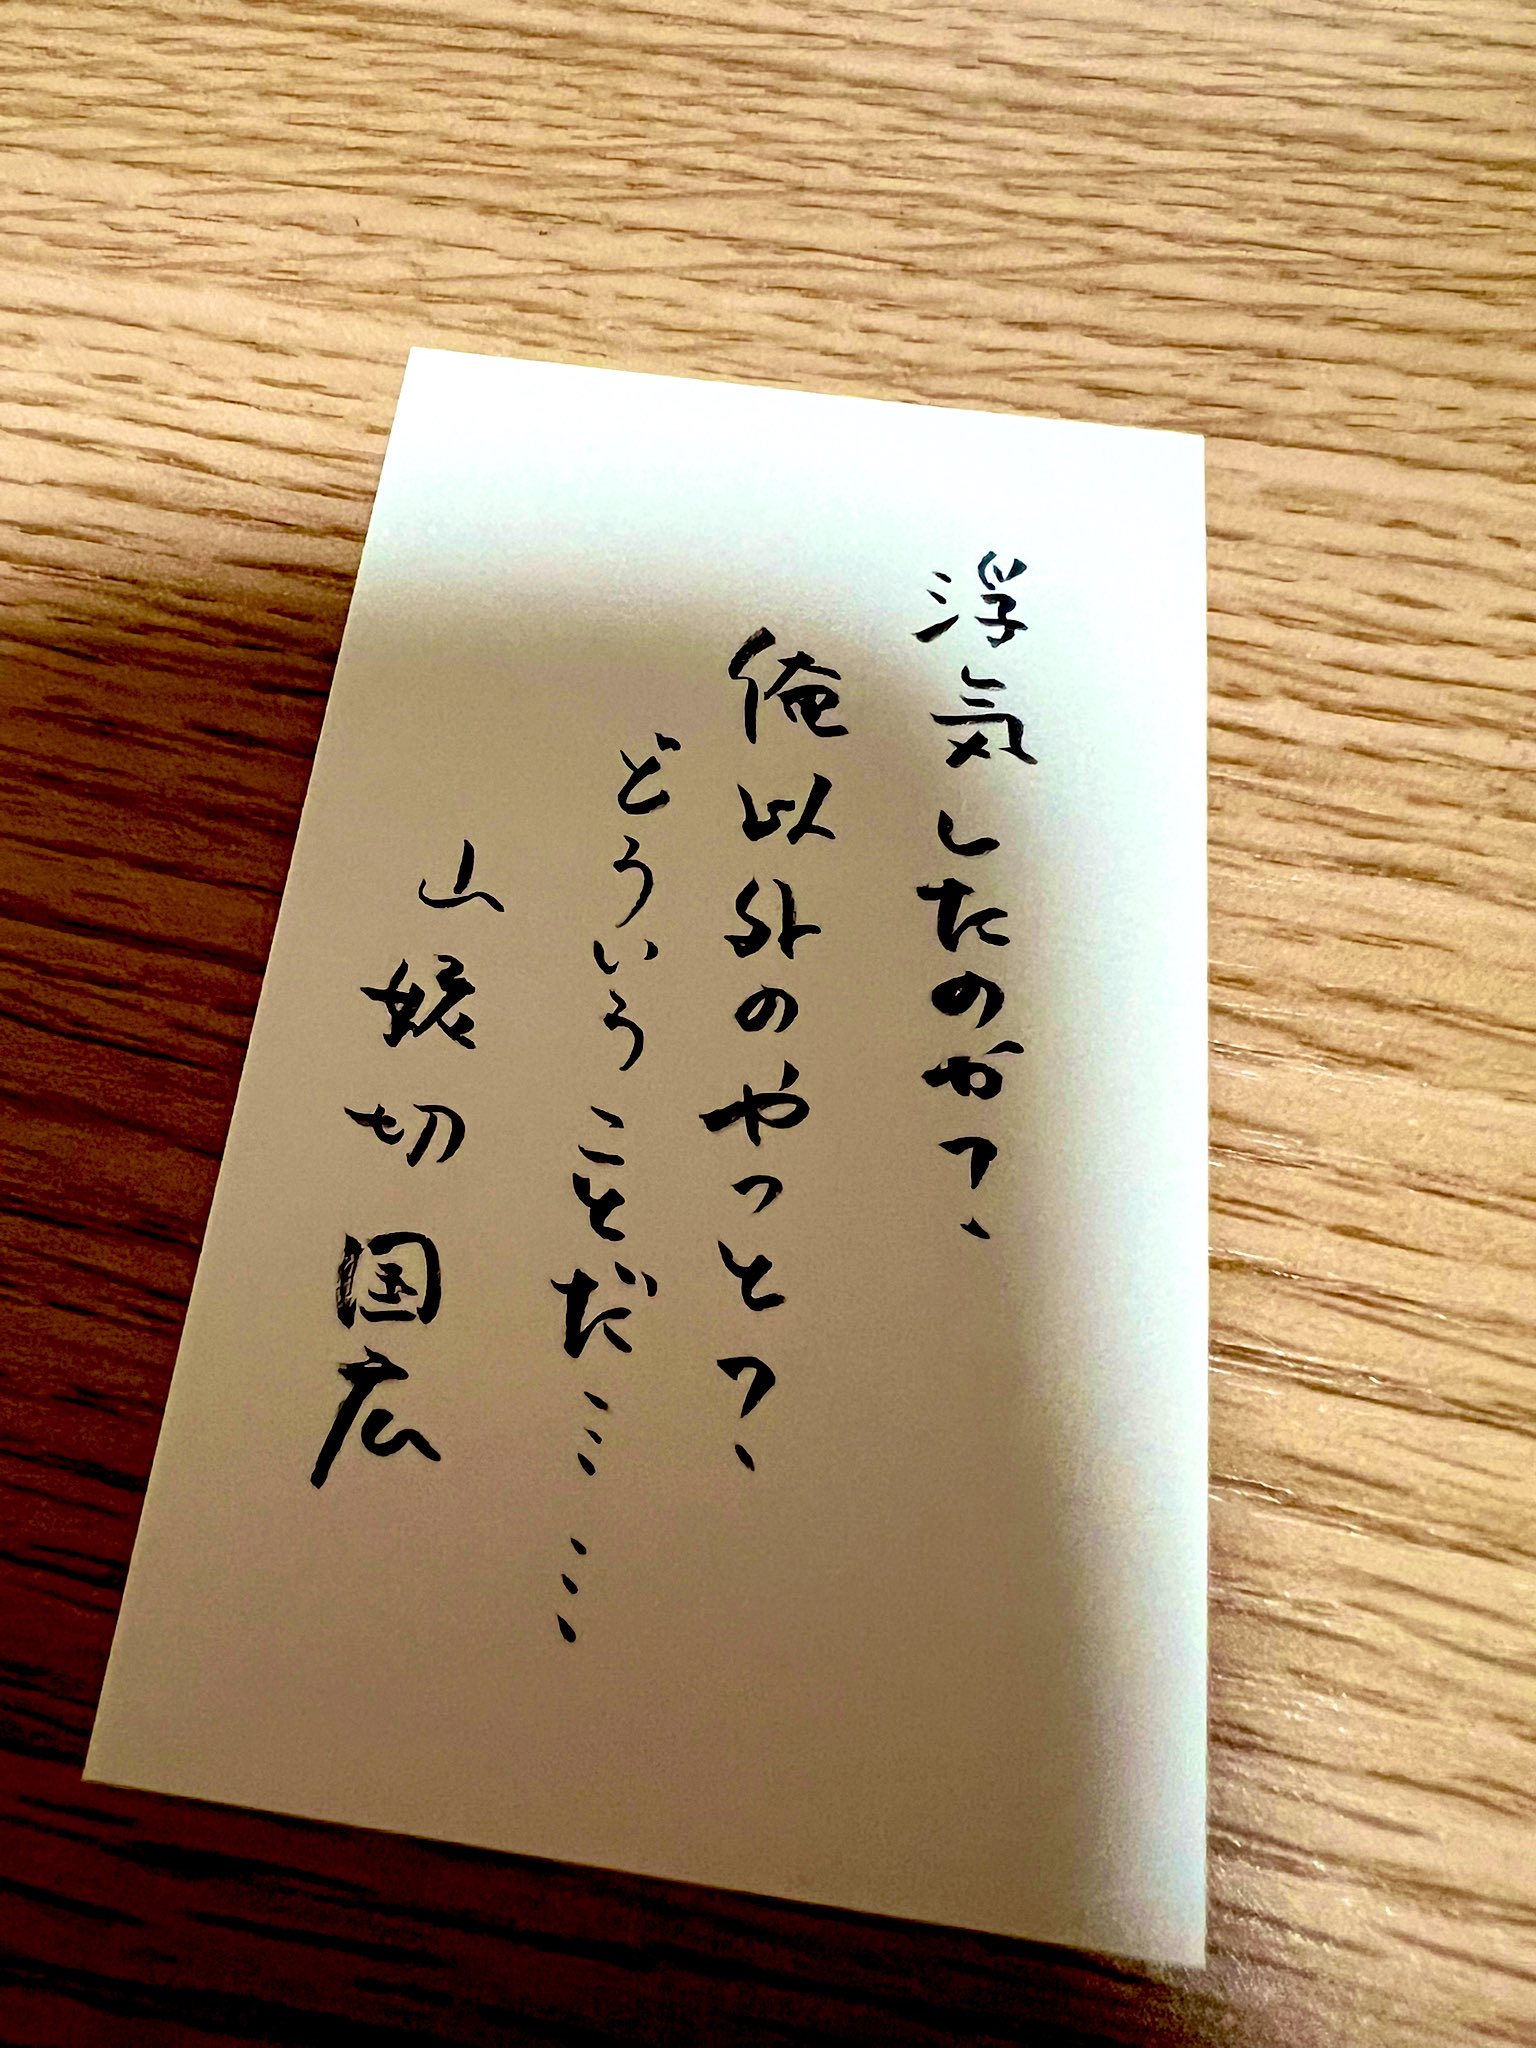 浮気したのかっ、
俺以外のやつとっ、
どういうことだ……
山姥切国広